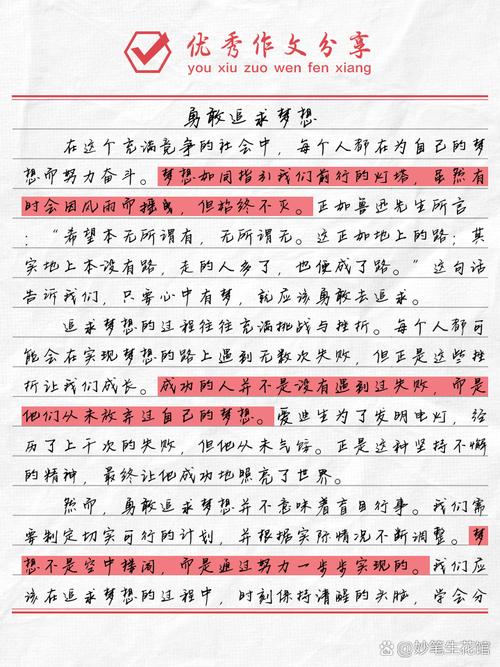 优秀作文分享
you xiu zuo wen fen xiang
勇敢追求梦想
在这个充满竞争的社会中，每个人都在为自己的梦
想而努力奋斗。梦想如同指引我们前行的灯塔，虽然有
时会因风雨而摇曳，但指终不灭。正如鲁迅先生所言
：“希望本无所谓有，无所谓无。这正如地上的路；其
实地上本没有路，走的人多了，也便成了路。”这句话
告诉我们，只要心中有梦，就应该勇敢去追求。
追求梦想的过程往往充满挑战与挫折。每个人都可
能会在实现梦想的路上遇到无数次失败，但正是这些挫
折让我们成长。成功的人并不是没有遇到过失败，而是
他们从未放弃过自己的梦想。爱迪生为了发明电灯，经
历了上千次的失败，但他从未气馁。正是这种坚持不懈
的精神，最终让他成功地照亮了世界。
然而，勇敢追求梦想并不意味着盲目行事。我们需
要制定切实可行的计划，并根据实际情况不断调整。梦
想不是空中楼阁，而是通过努力一步步实现的。我们应
该在追求梦想的过程中，时刻保持清醒的头脑，学会分
@妙笔生花馆